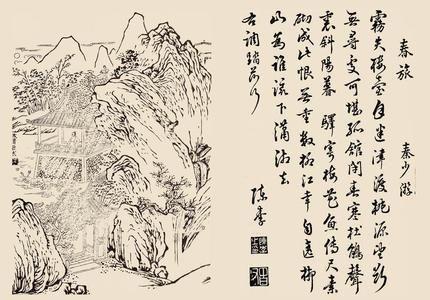 春旅 秦少游
霧失樓臺月迷津渡桃源望斷
無尋處可堪孤館閉春寒杜鵑聲
裏斜陽暮 驛寄梅花魚傳尺素
砌成此恨無重數郴江幸自遶郴
山為誰流下瀟湘去
右調踏莎行
陳